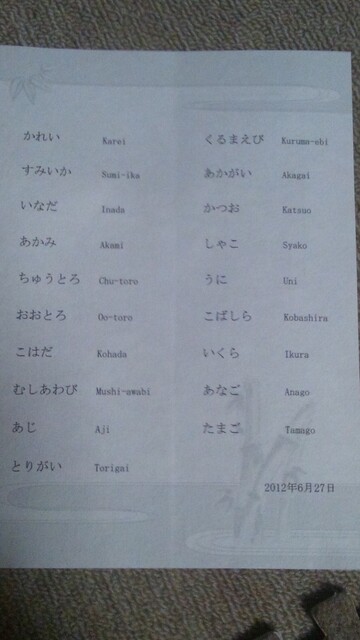 かれい Karei
すみいか Sumi-ika
いなだ Inada
あかみ Akami
ちゅうとろ Chu-toro
おおとろ Oo-toro
こはだ Kohada
むしあわび Mushi-awabi
あじ Aji
とりがい Torigai
くるまえび Kuruma-ebi
あかがい Akagai
かつお Katsuo
しゃこ Syako
うに Uni
こばしら Kobashira
いくら Ikura
あなご Anago
たまご Tamago
2012年6月27日